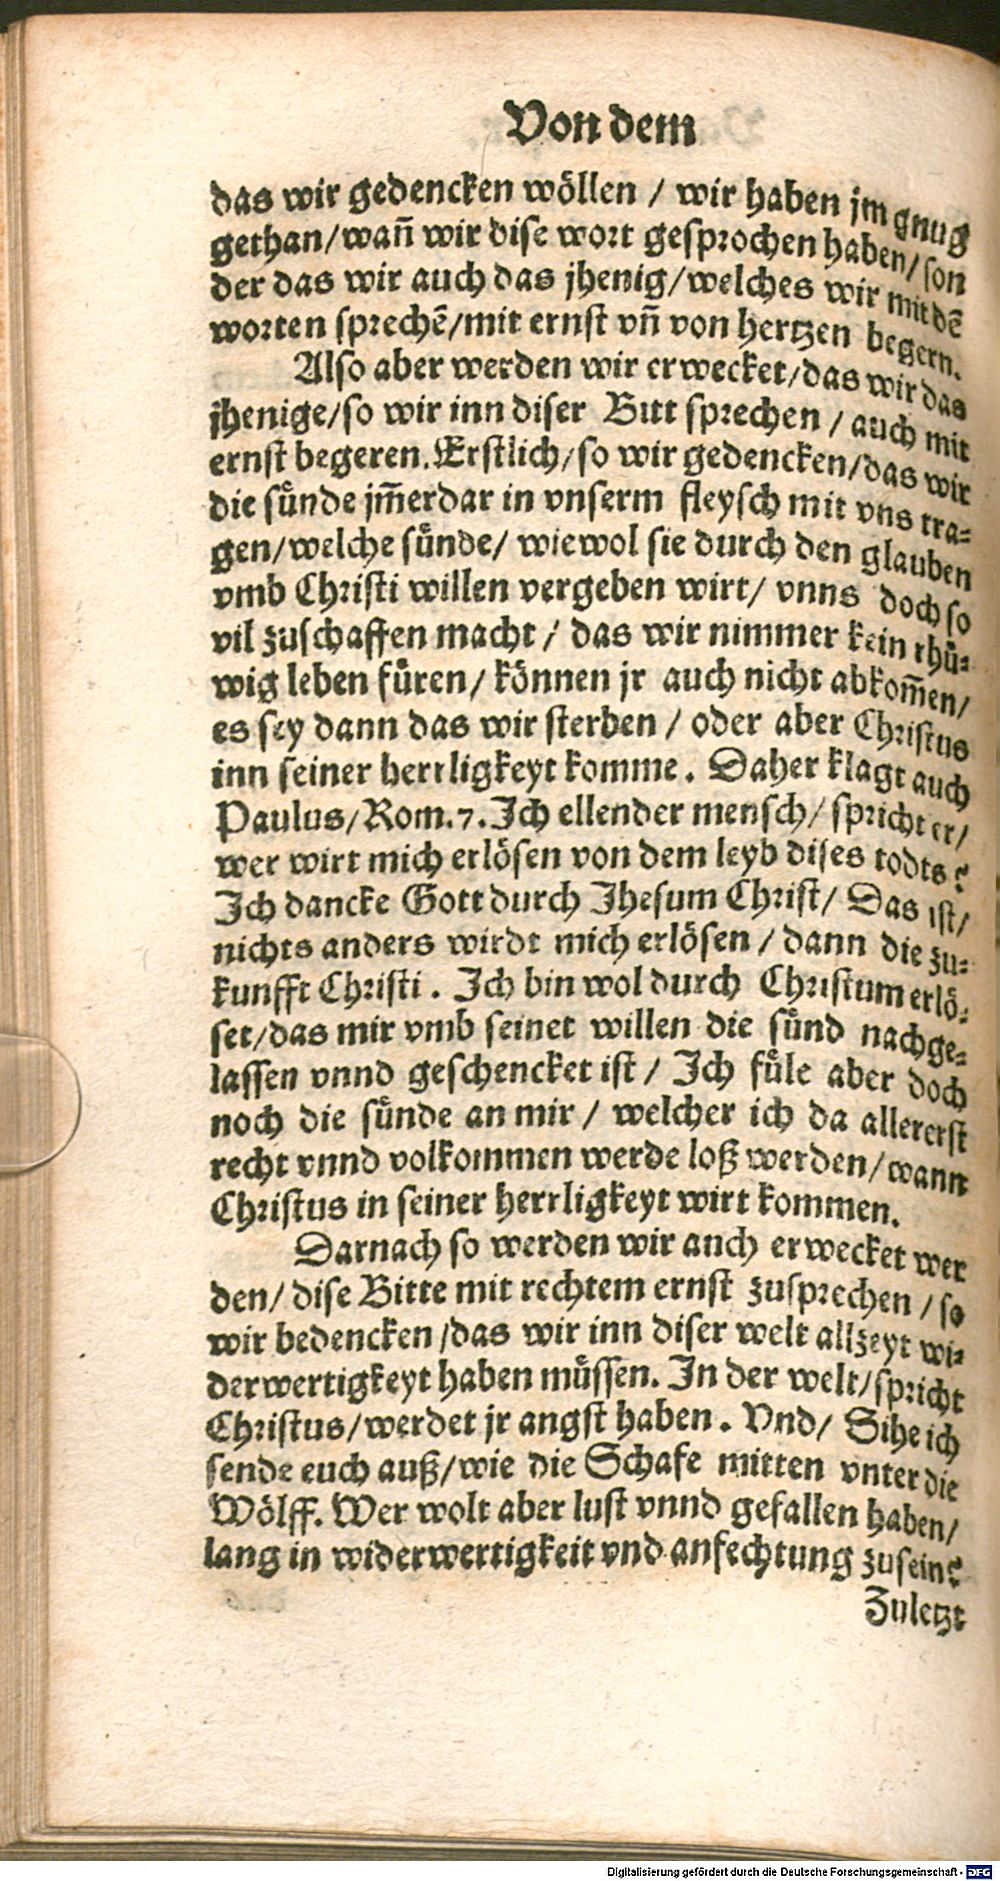 Von dem
das wir gedencken wöllen / wir haben jm gnug
gethan/wañ wir dise wort gesprochen haben/son
der das wir auch das jhenig/welches wir mit dē
worten sprechē/mit ernst vñ von hertzen begern.
Also aber werden wir erwecket/das wir das
jhenige/so wir inn diser Bitt sprechen / auch mit
ernst begeren. Erstlich/so wir gedencken/das wir
die sünde jm̄erdar in vnserm fleysch mit vns tra-
gen/welche sünde/ wiewol sie durch den glauben
vmb Christi willen vergeben wirt/ vnns doch so
vil zuschaffen macht / das wir nimmer kein rhü-
wig leben füren/ können jr auch nicht abkom̄en/
es sey dann das wir sterben / oder aber Christus
inn seiner herrligkeyt komme. Daher klagt auch
Paulus/Rom. 7. Ich ellender mensch/ spricht er/
wer wirt mich erlösen von dem leyb dises todts?
Ich dancke Gott durch Jhesum Christ/ Das ist/
nichts anders wirdt mich erlösen / dann die zu-
kunfft Christi. Ich bin wol durch Christum erlö-
set/das mir vmb seinet willen die sünd nachge-
lassen vnnd geschencket ist / Ich füle aber doch
noch die sünde an mir / welcher ich da allererst
recht vnnd volkommen werde loß werden/wann
Christus in seiner herrligkeyt wirt kommen.
Darnach so werden wir auch erwecket wer
den/ dise Bitte mit rechtem ernst zusprechen / so
wir bedencken /das wir inn diser welt allzeyt wi-
derwertigkeyt haben müssen. In der welt/spricht
Christus/werdet jr angst haben. Vnd/ Sihe ich
sende euch auß/wie die Schafe mitten vnter die
Wölff. Wer wolt aber lust vnnd gefallen haben/
lang in widerwertigkeit vnd anfechtung zusein?
Zuletzt
Digitalisierung gefördert durch die Deutsche Forschungsgemeinschaft - DFG